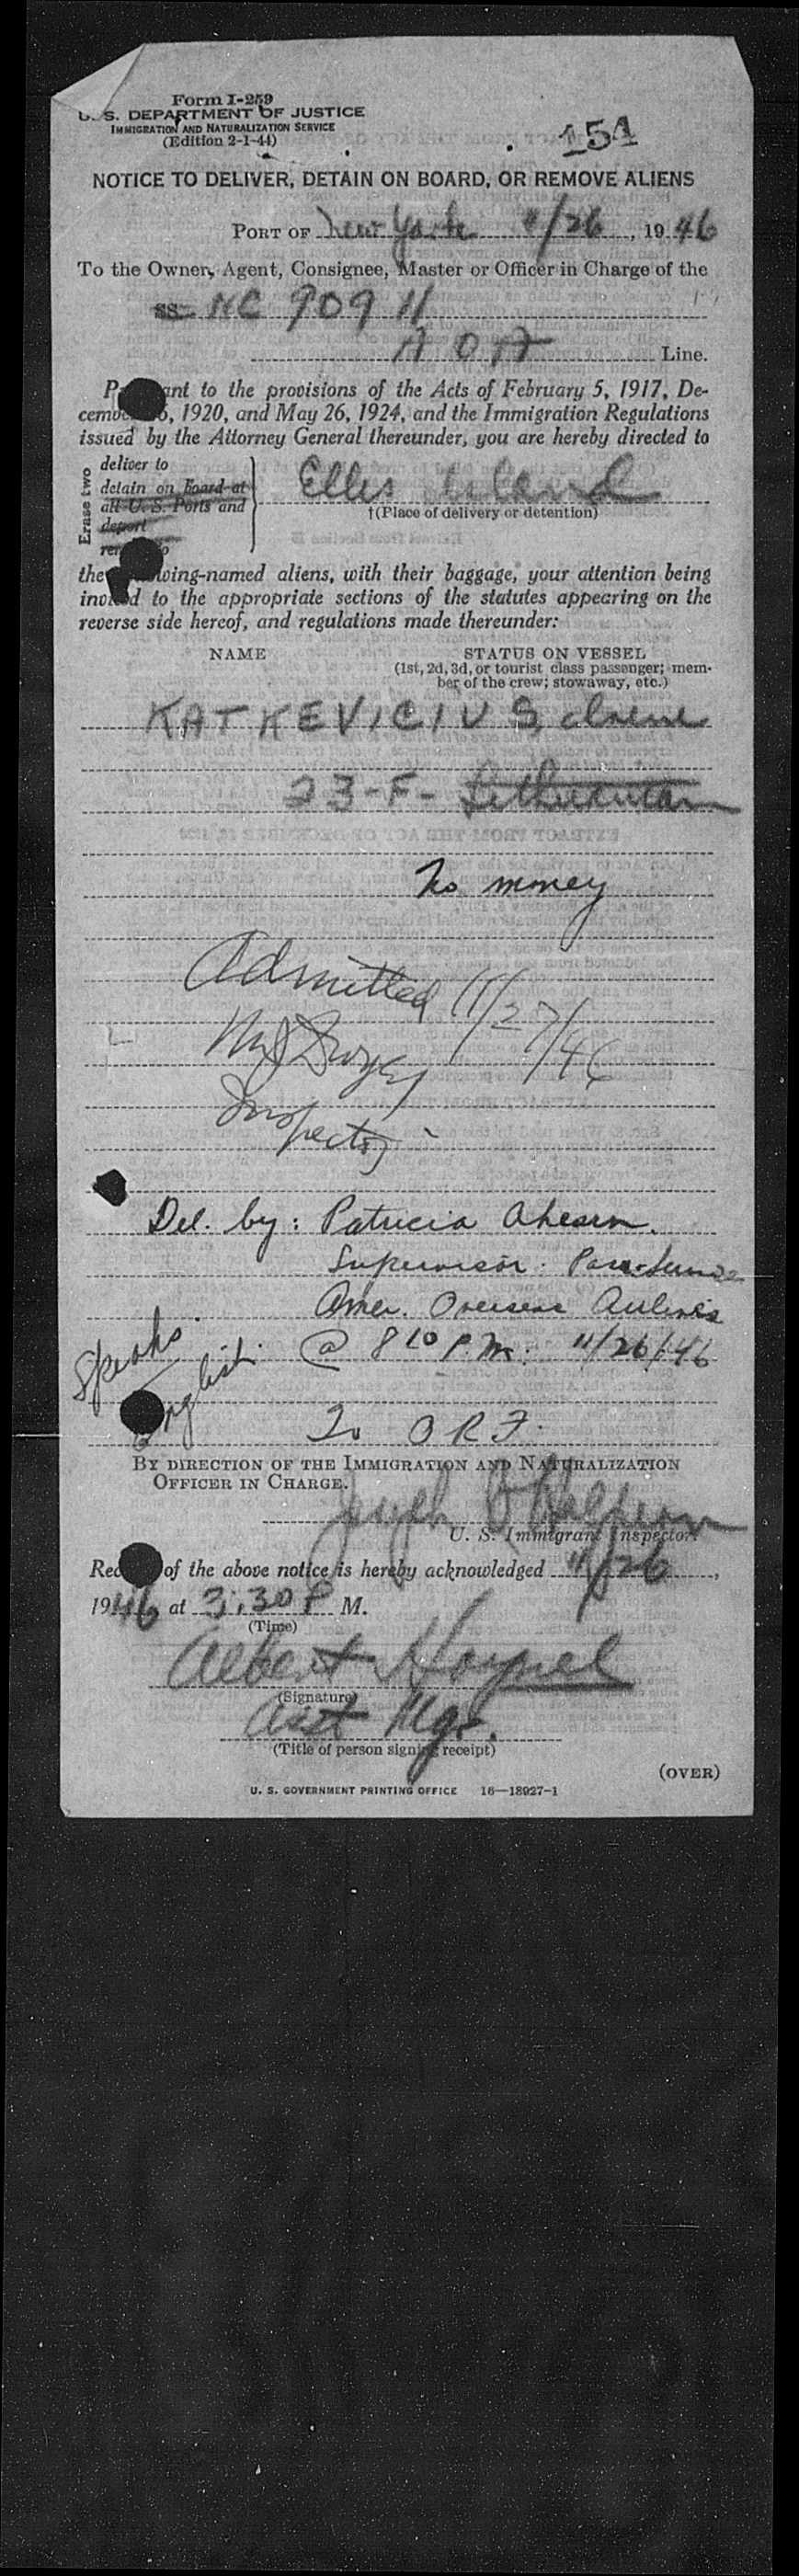 Form I-259
U. S. DEPARTMENT OF JUSTICE
IMMIGRATION AND NATURALIZATION SERVICE
(Edition 2-1-44)
154
NOTICE TO DELIVER, DETAIN ON BOARD, OR REMOVE ALIENS
PORT OF New York 11/26, 1946
To the Owner, Agent, Consignee, Master or Officer in Charge of the
SS NC 90911
A O A Line.
ant to the provisions of the Acts of February 5, 1917, De-
5, 1920, and May 26, 1924, and the Immigration Regulations
issued by the Attorney General thereunder, you are hereby directed to
Erase two
deliver to
detain on board at
all U. S. Ports and
deport
Ellis Island
†(Place of delivery or detention)
the wing-named aliens, with their baggage, your attention being
invited to the appropriate sections of the statutes appearing on the
reverse side hereof, and regulations made thereunder:
NAME STATUS ON VESSEL
(1st, 2d, 3d, or tourist class passenger; mem-
ber of the crew; stowaway, etc.)
KATKEVICIUS
23-F- Lithuanian
No money
Admitted 11/27/46
Inspector
Del. by: Patricia Ahearn.
Supervisor. Pass.
Amer. Overseas Airlines
@ 8 10 P.M. 11/26/46
Speaks
English.
To
BY DIRECTION OF THE IMMIGRATION AND NATURALIZATION
OFFICER IN CHARGE.
Joseph
U. S. Immigrant Inspector.
of the above notice is hereby acknowledged 11/26,
1946 at 3:30 P M.
(Time)
Albert
(Signature)
Asst Mgr.
(Title of person signing receipt)
(OVER)
U. S. GOVERNMENT PRINTING OFFICE 16—18927-1